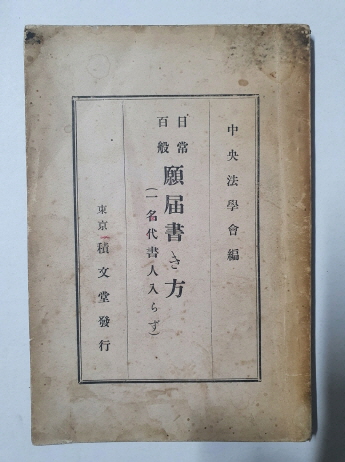 中央法學會編
日常
百般
願届書き方
(一名代書人入らず)
東京 積文堂發行